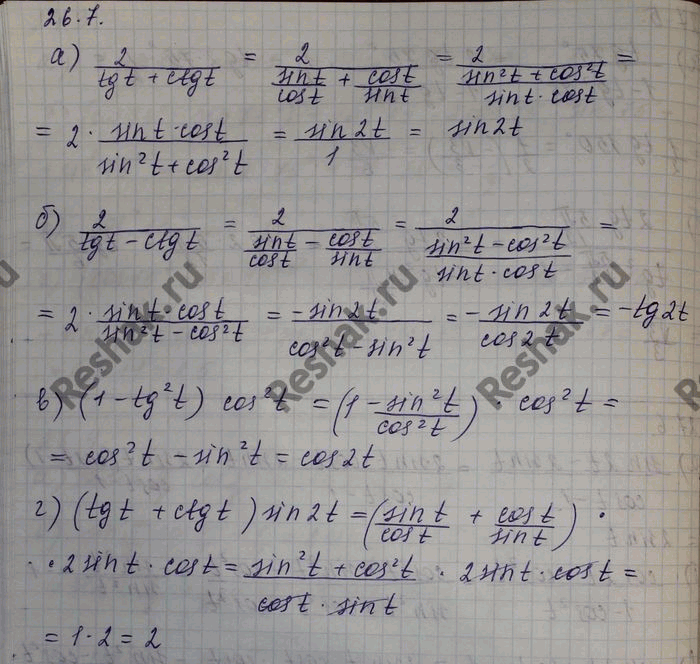 26.7.
а) 2/(tgt + ctgt) = 2/(sint/cost + cost/sint) = 2/((sin²t + cos²t)/(sint·cost)) =
= 2 · (sint·cost)/(sin²t + cos²t) = sin2t/1 = sin2t
б) 2/(tgt − ctgt) = 2/(sint/cost − cost/sint) = 2/((sin²t − cos²t)/(sint·cost)) =
= 2 · (sint·cost)/(sin²t − cos²t) = −sin2t/(cos²t − sin²t) = −sin2t/cos2t = −tg2t
в) (1 − tg²t) cos²t = (1 − sin²t/cos²t) · cos²t =
= cos²t − sin²t = cos2t
г) (tgt + ctgt) sin2t = (sint/cost + cost/sint) ·
· 2sint·cost = (sin²t + cos²t)/(cost·sint) · 2sint·cost =
= 1·2 = 2
Reshak.ru
Reshak.ru
Reshak.ru